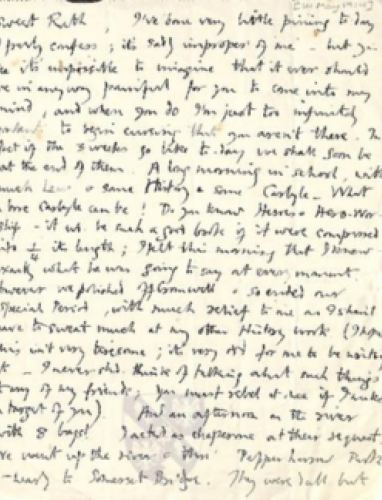 Sweet Ruth, I've done very little pining to-day
I freely confess; it's sadly improper of me - but you
see it's impossible to imagine that it ever should
be in any way painful for you to come into my
mind, and when you do I'm just too infinitely
to begin cursing that you aren't there. In
fact if the sweeter go like to-day we shall soon be
at the end of them. A long morning in school, with
much Latin & some History & some Carlyle - What
a bore Carlyle can be! Do you know Heroes & Hero-Wor
ship - it wd. be such a good book if it were compressed
into 1/4 its length; I felt this morning that I knew
exactly what he was going to say at every moment.
However we polished off Cromwell & so ended our
Special Period, with much relief to me as I shan't
have to sweat much at any other History work (I hope
this isn't very tiresome; it's very odd for me to be writing
it - I never shd. think of talking about such things
to any of my friends; You must rebel at once if I make
a target of you) And an afternoon on the river
with 8 boys! I acted as chaperone at their request.
We went up the river & thro' Pepper Harrow Park
- nearly to Somerset Bridge. They were dull but